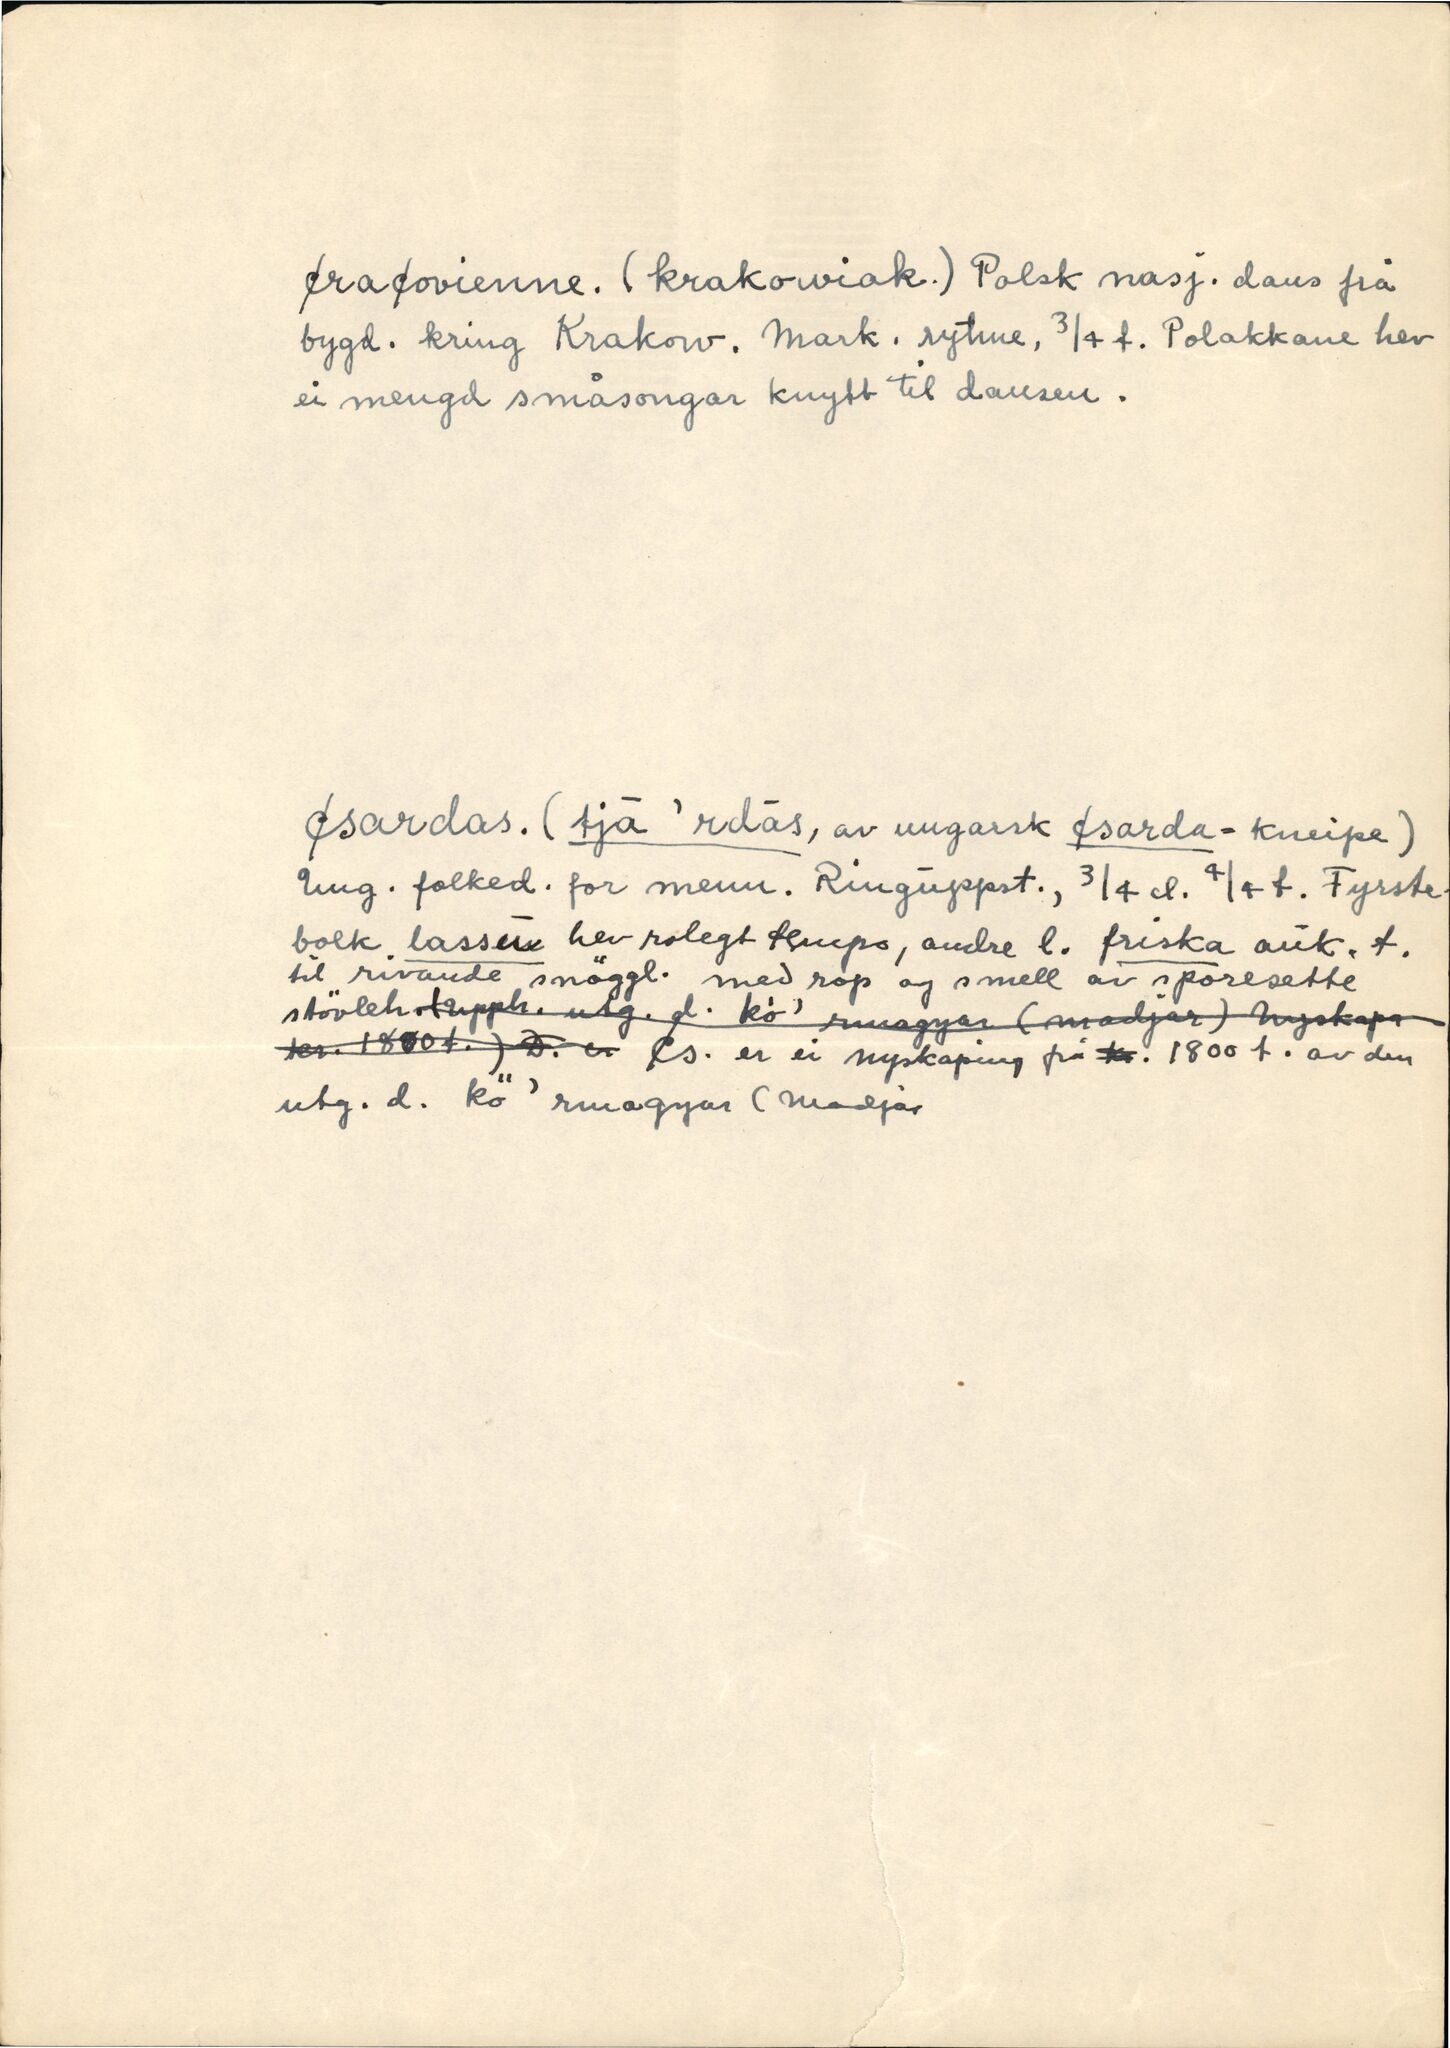 Cracovienne. (krakowiak.) Polsk nasj. dans frå
bygd. kring Krakow. Mark. rytme, 3/4 t. Polakkane hev
ei mengd småsongar knytt til dansen.
Csardas. (tjā'rdās, av ungarsk csarda - kneipe)
Ung. folked. for menn. Ringuppst., 3/4 el. 4/4 t. Fyrste
bolk lassu hev rolegt tempo, andre b. friska auk. t.
til rivande snöggl. med rop og smell av sporesette
stövleh. Upph. utg. d. kö'rmagyar (madjar) Nyskapa
kr. 1800 t.) D. er Cs. er ei nyskaping frå kr. 1800 t. av den
utg. d. kö'rmagyar (madjar